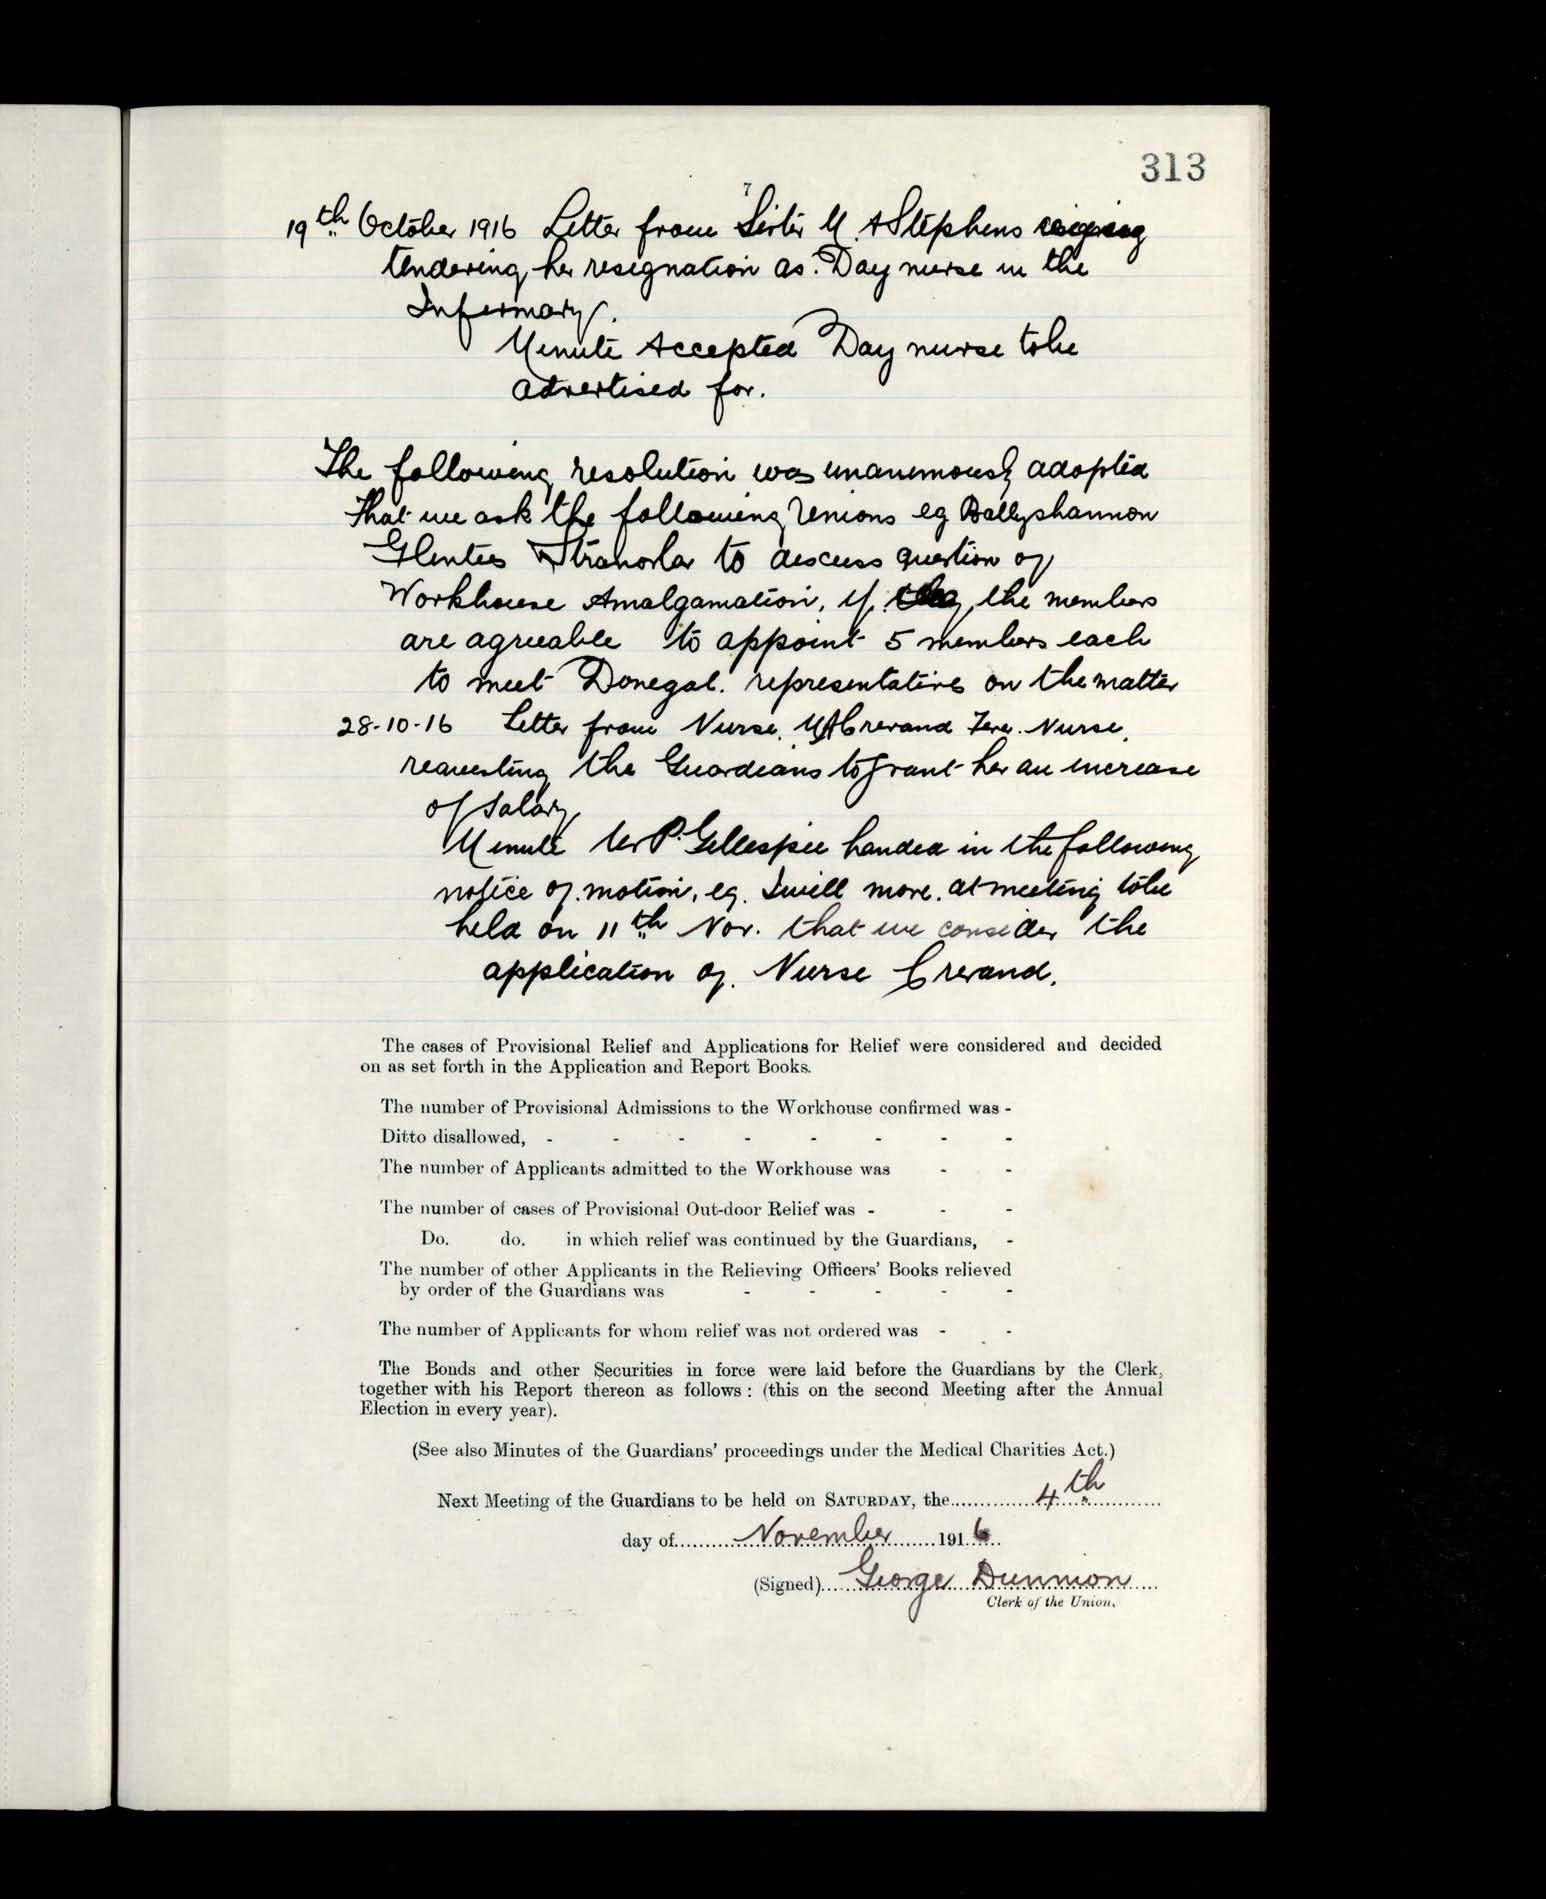 313
7
19th October 1916 Letter from Sister M. A Stephens resigning
tendering her resignation as Day nurse in the
Infirmary.
Minute Accepted Day nurse to be
advertised for.
The following resolution was unanimously adopted
That we ask the following Unions eg Ballyshannon
Glenties Stranorlar to discuss question of
Workhouse Amalgamation, if they the members
are agreeable to appoint 5 members each
to meet Donegal. representatives on the matter
28-10-16 Letter from Nurse. Crevand Nurse.
requesting the Guardians to grant her an increase
of salary
Minute Mr P. Gillespie handed in the following
notice of motion, eg. I will move. at meeting to be
held on 11th Nov. that we consider the
application of. Nurse Crevand.
The cases of Provisional Relief and Applications for Relief were considered and decided
on as set forth in the Application and Report Books.
The number of Provisional Admissions to the Workhouse confirmed was -
Ditto disallowed, - - - - - - - -
The number of Applicants admitted to the Workhouse was - -
The number of cases of Provisional Out-door Relief was - - -
Do. do. in which relief was continued by the Guardians, -
The number of other Applicants in the Relieving Officers' Books relieved
by order of the Guardians was - - - - -
The number of Applicants for whom relief was not ordered was - -
The Bonds and other Securities in force were laid before the Guardians by the Clerk,
together with his Report thereon as follows : (this on the second Meeting after the Annual
Election in every year).
(See also Minutes of the Guardians' proceedings under the Medical Charities Act.)
Next Meeting of the Guardians to be held on SATURDAY, the 4th
day of November 1916
(Signed) George Dunnion
Clerk of the Union.